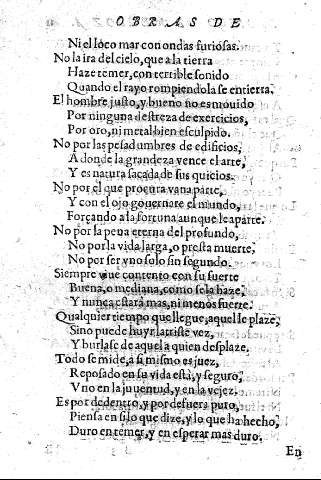 OBRAS DE
Ni el loco mar con ondas furiosas.
No la ira del cielo, que a la tierra
Haze temer, con terrible sonido
Quando el rayo rompiendola se entierra.
El hombre justo, y bueno no es movido
Por ninguna destreza de exercicios,
Por oro, ni metal bien esculpido.
No por las pesadumbres de edificios,
A donde la grandeza vence el arte,
Y es natura sacada de sus quicios.
No por el que procura vana parte,
Y con el ojo governare el mundo,
Forçando a la fortuna aunque le aparte.
No por la pena eterna del profundo,
No por la vida larga, o presta muerte,
No por ser vno solo sin segundo.
Siempre viue contento con su suerte
Buena, o mediana, como se la haze,
Y nunca estarà mas, ni menos fuerte.
Qualquier tiempo que llegue, aquel le plaze,
Sino puede huyr la triste vez,
Y burlase de aquel a quien desplaze.
Todo se mide, a si mismo es juez,
Reposado en su vida està, y seguro,
Vno en la juuentud, y en la vejez.
Es por de dentro, y por defuera puro,
Piensa en si lo que dize, y lo que ha hecho,
Duro en temer, y en esperar mas duro.
En